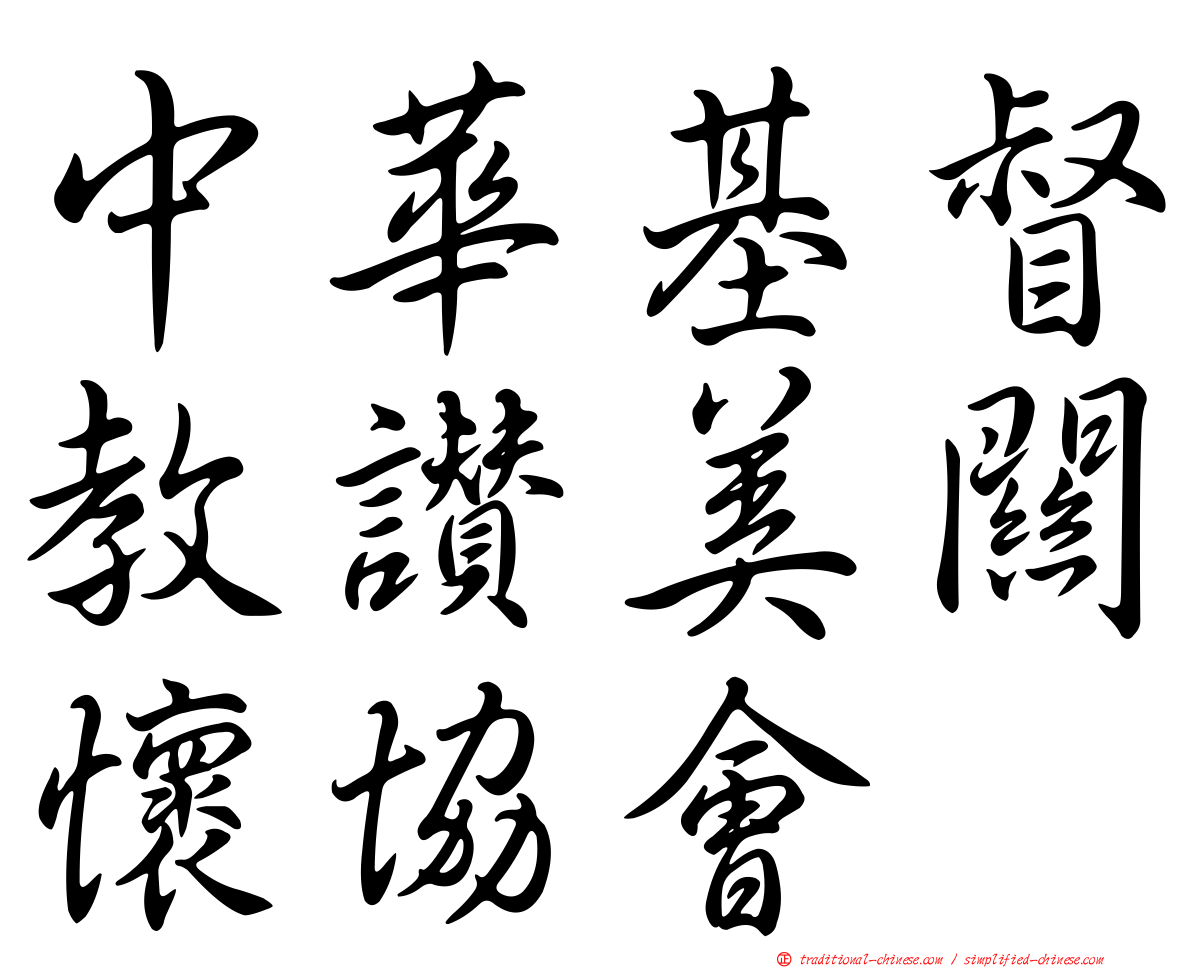 中華基督
教讚美關
懷協會
㊣ traditional-chinese.com / simplified-chinese.com